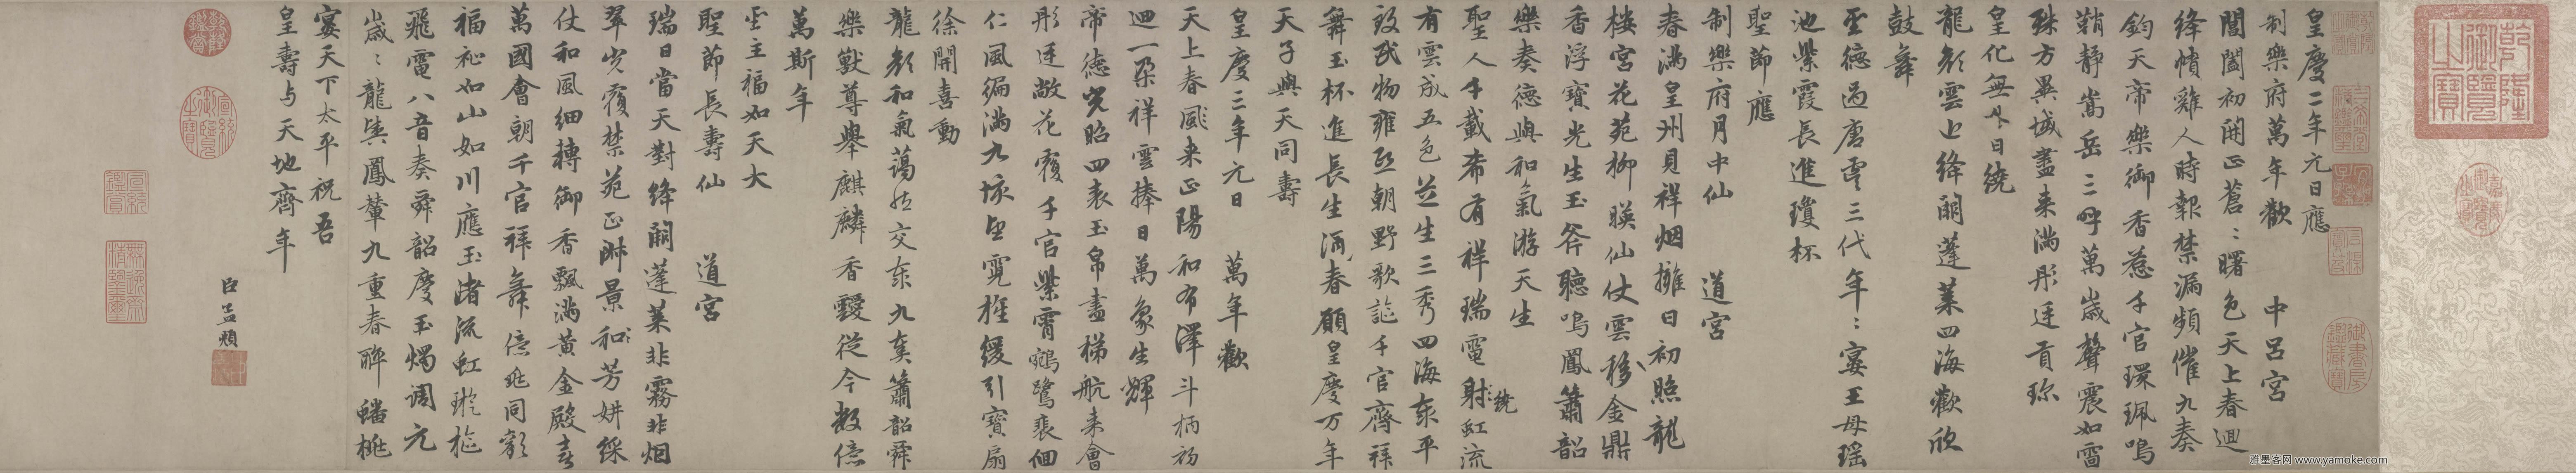 皇慶二年元日應
制樂府萬年歡　中呂宮
閶闔初開正蒼〻曙色天上春迴
絳幘雞人時報禁漏頻催九奏
鈞天帝樂御香惹千官環珮鳴
鞘靜嵩岳三呼萬歲聲震如雷
殊方異域盡来滿彤廷貢珎
皇化無外日繞
龍顏雲近絳闕蓬萊四海歡欣
鼓舞
聖德過唐虞三代年〻宴王母瑶
池紫霞長進瓊杯
聖節應
制樂府月中仙　道宮
春滿皇州見祥烟擁日初照龍
樓宮花苑柳暎仙仗雲移金鼎
香浮寶光生玉斧聽鳴鳳簫韶
樂奏德與和氣游天生
聖人千載希有祥瑞電射繞虹流
有雲成五色芝生三秀四海泰平
致民物雍熙朝野歌謳千官齊拜
舞玉杯進長生酒春願皇慶万年
天子與天同壽
皇慶三年元日　萬年歡
天上春風来正陽和布澤斗柄初
迴一朶祥雲捧日萬象生輝
帝德光昭四表玉帛盡梯航来會
彤廷敞花覆千官紫霄鵷鷺裴佪
仁風徧滿九垓望霓旌緩引寶扇
徐開喜動
龍顏和氣藹然交泰九奏簫韶舜
樂獸尊舉麒麟香靉從今數億
萬斯年
聖主福如天大
聖節長壽仙　道宮
瑞日當天對絳闕蓬萊非霧非烟
翠光覆禁苑正淑景和芳妍綵
仗和風細轉御香飄滿黄金殿喜
萬國會朝千官拜舞億兆同歡
福祉如山如川應玉渚流虹璇樞
飛電八音奏舜韶慶玉燭调元
歲〻龍輿鳳輦九重春醉蟠桃
宴天下太平祝吾
皇壽与天地齊年
臣孟頫
乾隆御覽之寶
雅墨客网 www.yamoke.com